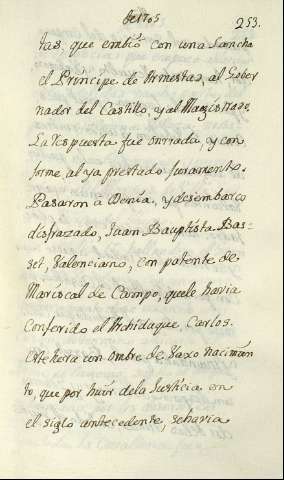 deltos 253.
tas, que embió con una Lancha
el Príncipe de Armestad, al Gober
nador del Castillo, y al Magistrado.
La respuesta fué onrrada, y con
forme al ya prestado Juramento.
Pasaron à Denia, y desembarcó
disfrazado, Juan Bauptista Bas=
set, Valenciano, con patente de
Mariscal de Campo, que le havia
Conferido el Archiduque, Carlos.
Este hera un ombre de vaxo nacimien
to, que por huir dela Justicia en
el siglo antecedente, sehavia